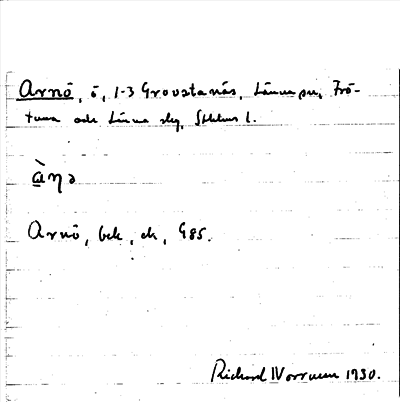 Arnö, ö, 1-3 Grovstanäs, Länna sn, Frö-
tuna och Länna skg, Sthlms l.
à̱ŋə
Arnö, bek, ek, G85.
Richard Norrman 1930.